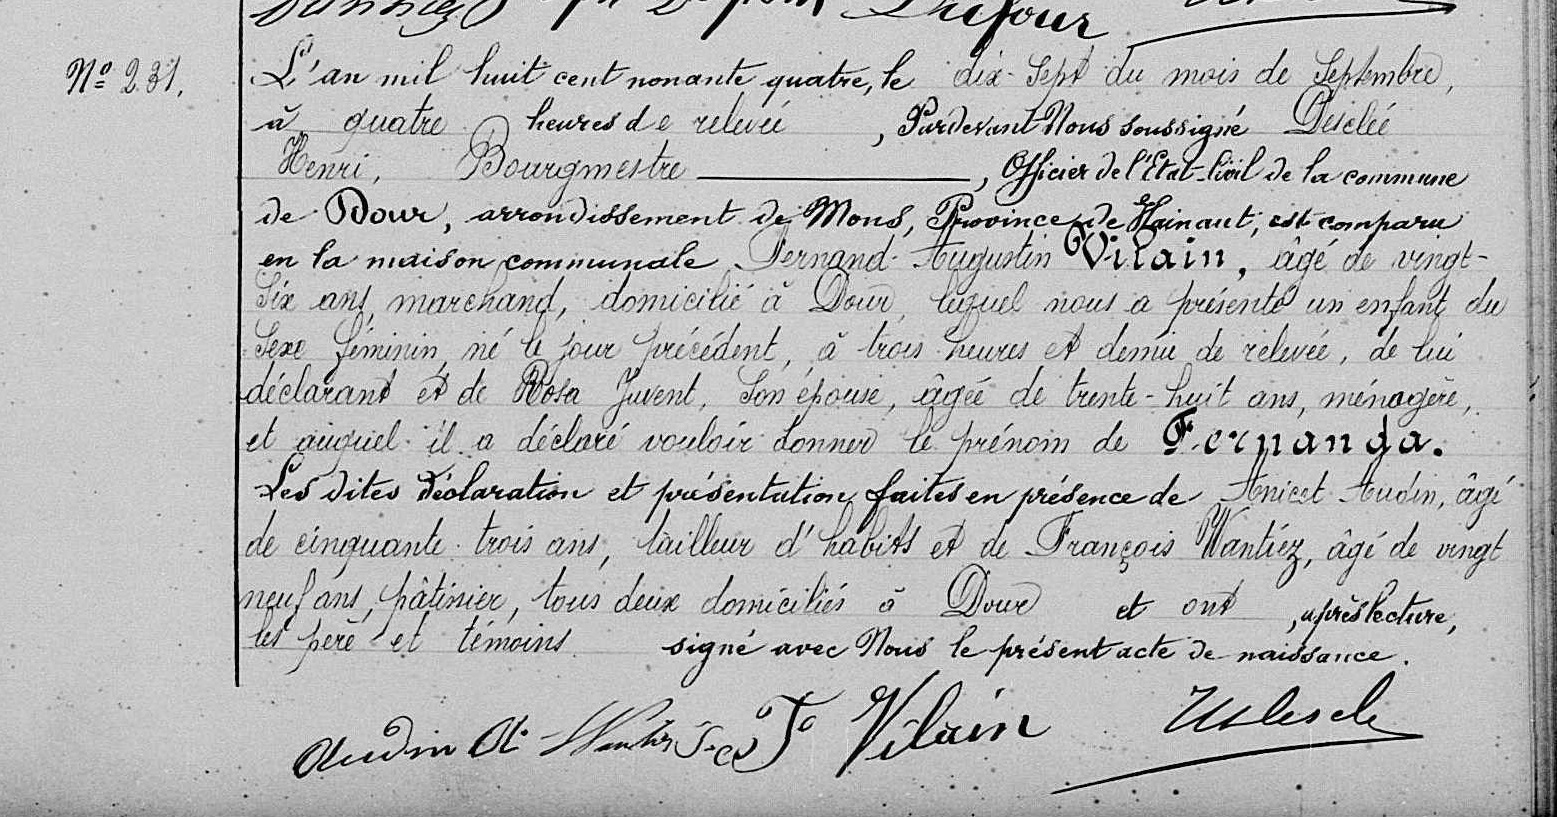 Dufour
Nº 231.
L'an mil huit cent nonante quatre, le dix-sept du mois de Septembre,
à quatre heures de relevée, Pardevant Nous soussigné Desclée
Henri, Bourgmestre, Officier de l'Etat-Civil de la commune
de Dour, arrondissement de Mons, Province de Hainaut, est comparu
en la maison communale Fernand Augustin Vilain, âgé de vingt-
six ans, marchand, domicilié à Dour, lequel nous a présenté un enfant du
sexe féminin, né le jour précédent, à trois heures et demie de relevée, de lui
déclarant et de Rosa Juvent, son épouse, âgée de trente-huit ans, ménagère,
et auquel il a déclaré vouloir donner le prénom de Fernanda.
Les dites déclaration et présentation faites en présence de Anicet Audin, âgé
de cinquante trois ans, tailleur d'habits et de François Wantiez, âgé de vingt
neuf ans, pâtissier, tous deux domiciliés à Dour et ont, après lecture,
les père et témoins signé avec Nous le présent acte de naissance.
Audin A. Wantiez F. Vilain